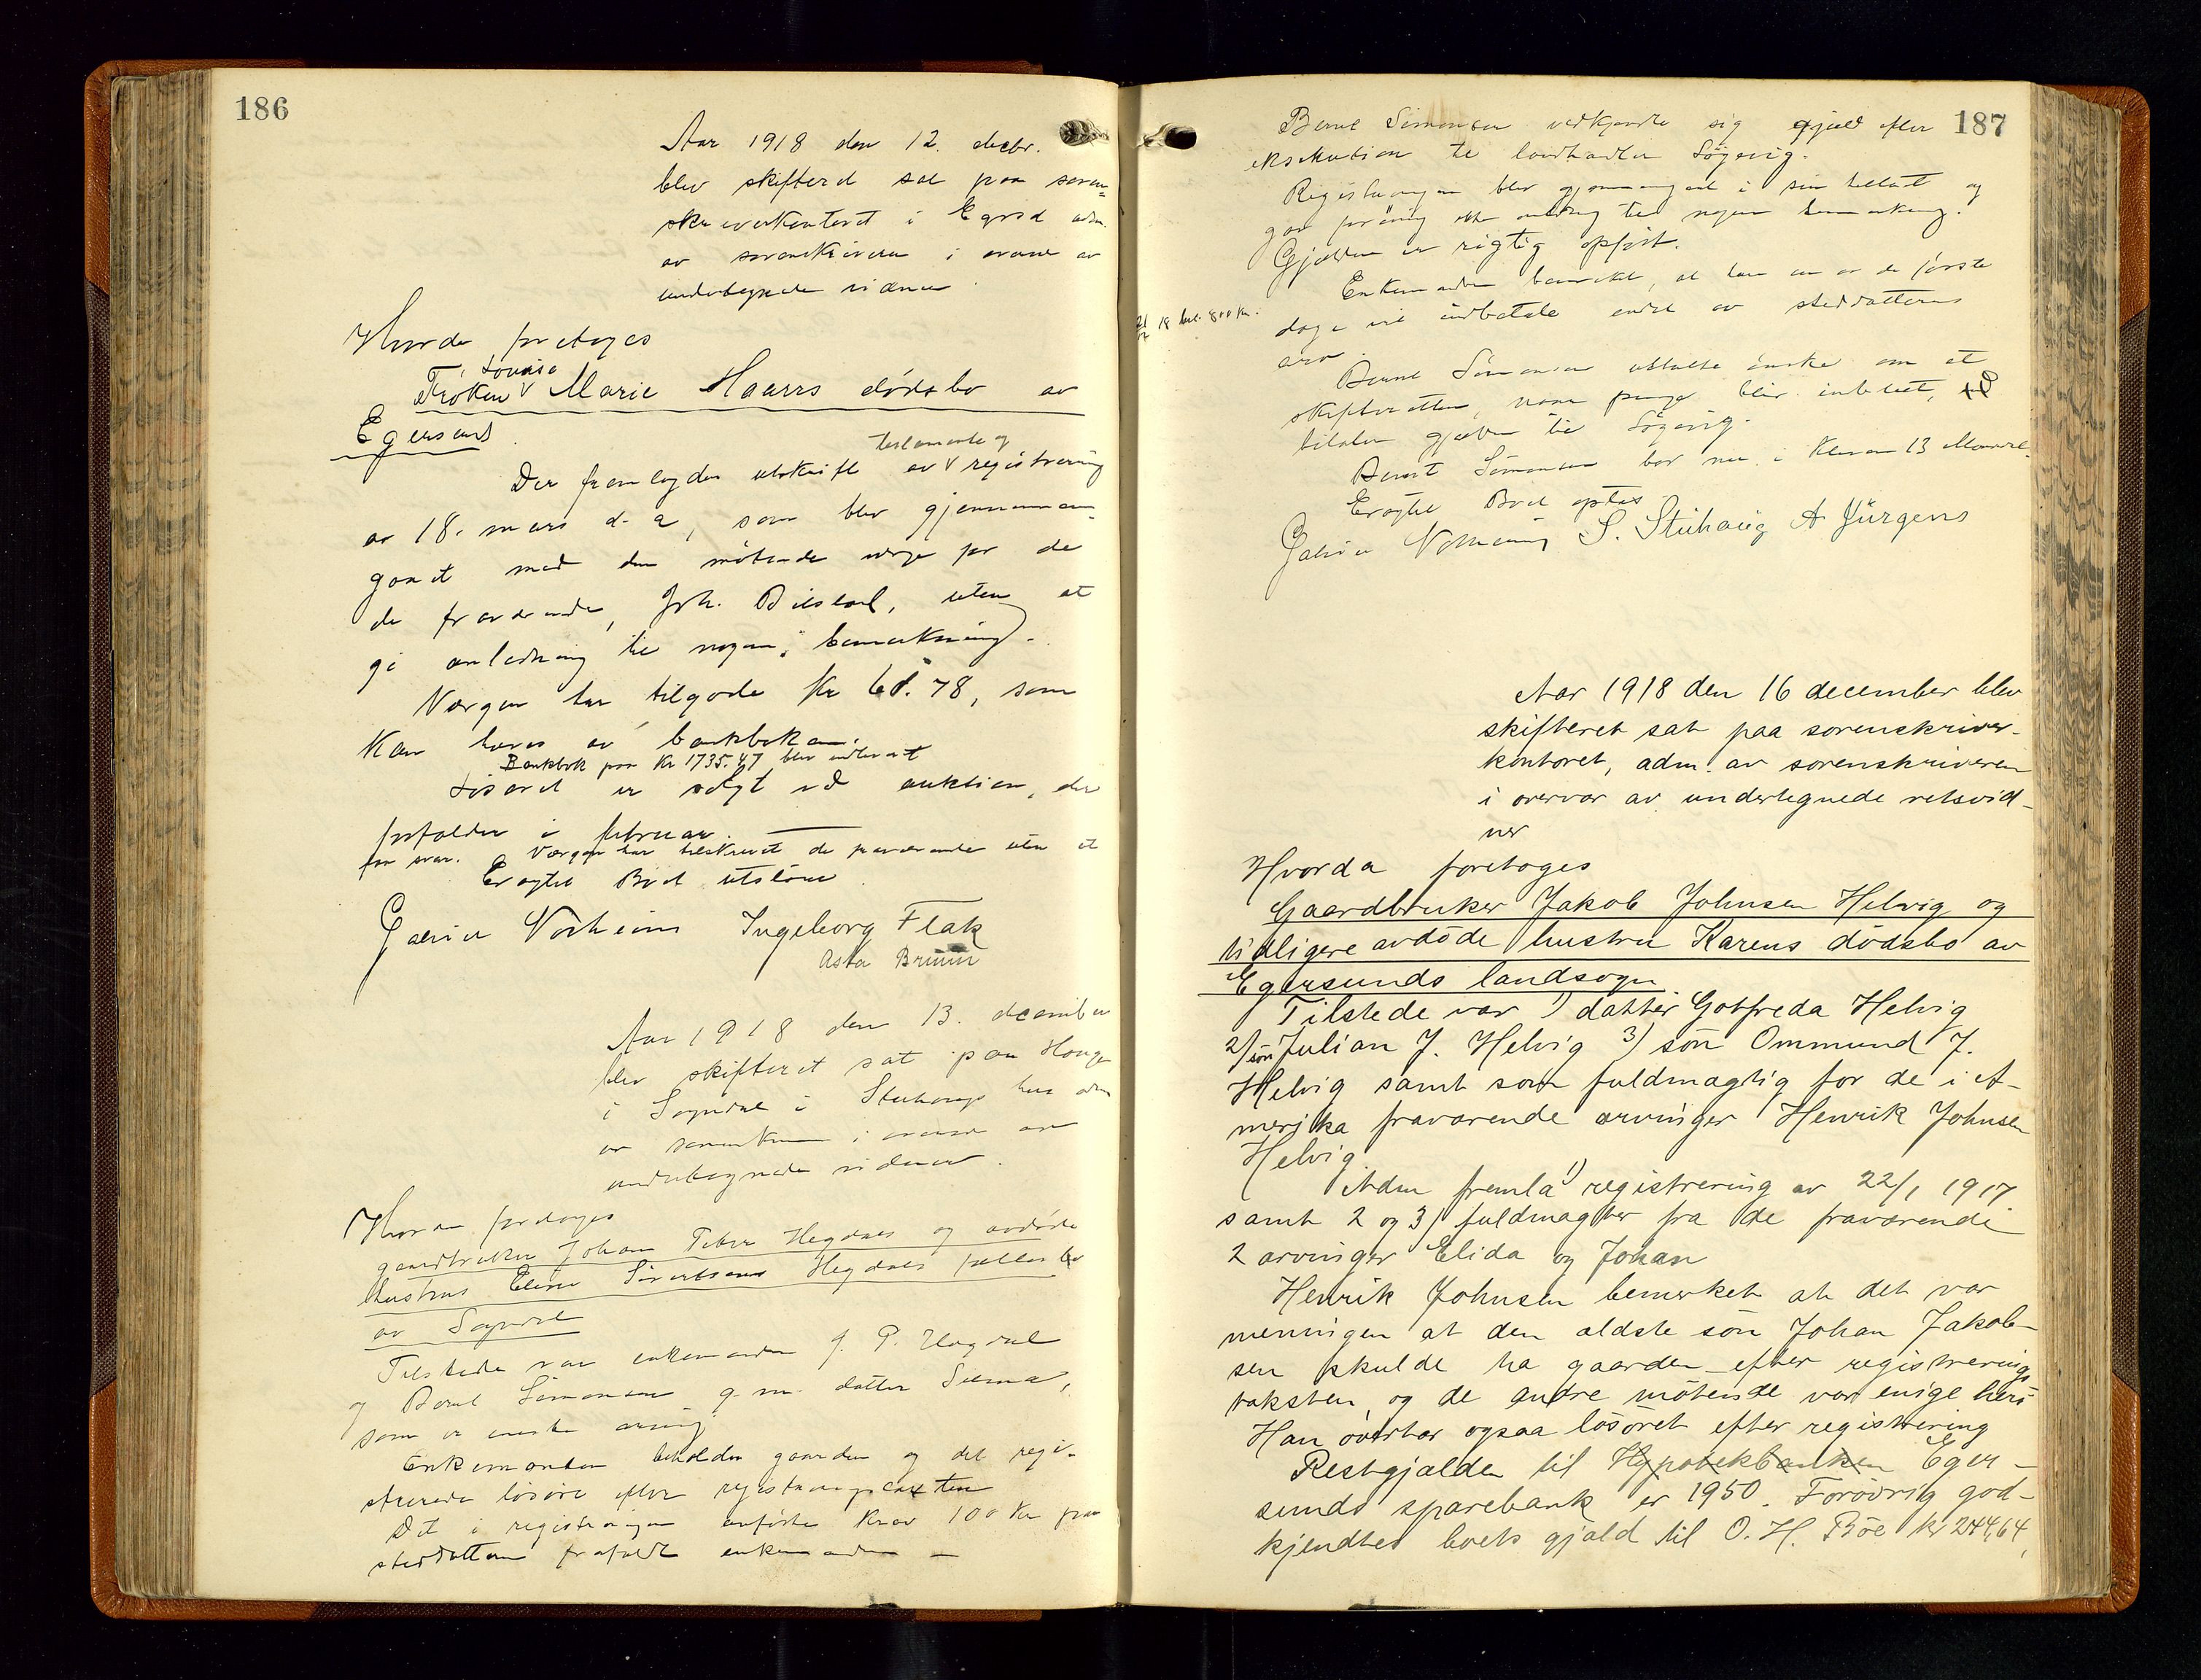 186
Aar 1918 den 12. decbr.
blev skifteret sat paa soren-
skriverkontoret i Egrsd adm.
av sorenskriveren i overvær av
undertegnede vidner
Hvorda foretoges
Frøken Lovise Marie Haarrs dödsbo av
Egersund.
Der fremlagdes utskrift av testamente og registrering
av 18. mars d. a, som blev gjennemm-
gaaet med den mötende verge for de
de fraværende, Joh. Bilstad, uten at
gi anledning til nogen bemerkning.
Vergen har tilgode kr 61.78, som
kan hæves av bankboken.
Bankbok paa kr 1735.47 blev indlevert
Lösöret er solgt ved auktion, der
forfalder i februar.
Vergen har tilskrevet de fraværende uten at
faa svar.
Eragtet Boet utsløvet
Gabriel Norheim Ingeborg Flak
Asta Bruun
Aar 1918 den 13. december
blev skifteret sat paa Hauge
i Sogndal i Stuhaugs hus adm
av sorenskriveren i overvær av
undertegnede vidner.
Hvorda foretoges
gaardbruker Johan Peter Hegdals og avdøde
hustrus Eline Sivertsens Hegdals fællesbo
av Sogndal
Tilstede var enkemanden J. P. Hegdal
og Bernt Simonsen g. m. datter Selma,
som er eneste arving
Enkemanden beholder gaarden og det regi-
strerede lösöre efter registreringstaxten
Det i registreringen anförte krav 100 kr fra
steddatteren frafaldt enkemanden —
187
Bernt Simonsen vedkjendte sig gjæld efter
eksekution til landhandler Sögevig.
Registreringen blev gjennemgaaet i sin helhet og
gav forövrig ikke anledning til nogen bemerkning.
Gjælden er rigtig opført.
Enkemanden bemerket, at han en av de første
dage vil indbetale endel av steddatterens
arv.
21/12 18 bet. 800 kr.
Bernt Simonsen uttalte önske om at
skifteretten, naar penge blir indbetalt,
betaler gjælden til Sögevig.
Bernt Simonsen bor nu i 13
Eragtet Boet optas
Gabriel Norheim S. Stuhaug A Jürgens
Aar 1918 den 16 december blev
skifteret sat paa sorenskriver-
kontoret, adm. av sorenskriveren
i overvær av undertegnede retsvid-
ner
Hvorda foretoges
Gaardbruker Jakob Johnsen Helvig og
tidligere avdöde hustru Karens dödsbo av
Egersunds landsogn
Tilstede var 1) datter Gotfreda Helvig
2) sön Julian J. Helvig 3) sön Ommund J.
Helvig samt som fuldmægtig for de i A-
merika fraværende arvinger Henrik Johnsen
Helvig.
Adm fremla 1) registrering av 22/1 1917
samt 2 og 3) fuldmagter fra de fraværende
2 arvinger Elida og Johan
Henrik Johnsen bemerket at det var
meningen at den ældste sön Johan Jakob-
sen skulde ha gaarden efter registrerings
taksten, og de andre mötende var enige heri
Han overtar ogsaa lösöret efter registrering
Restgjælden til Hypotekbanken Eger-
sunds sparebank er 1950. Forövrig god-
kjendtes boets gjæld til O. H. Böe kr 244,64,